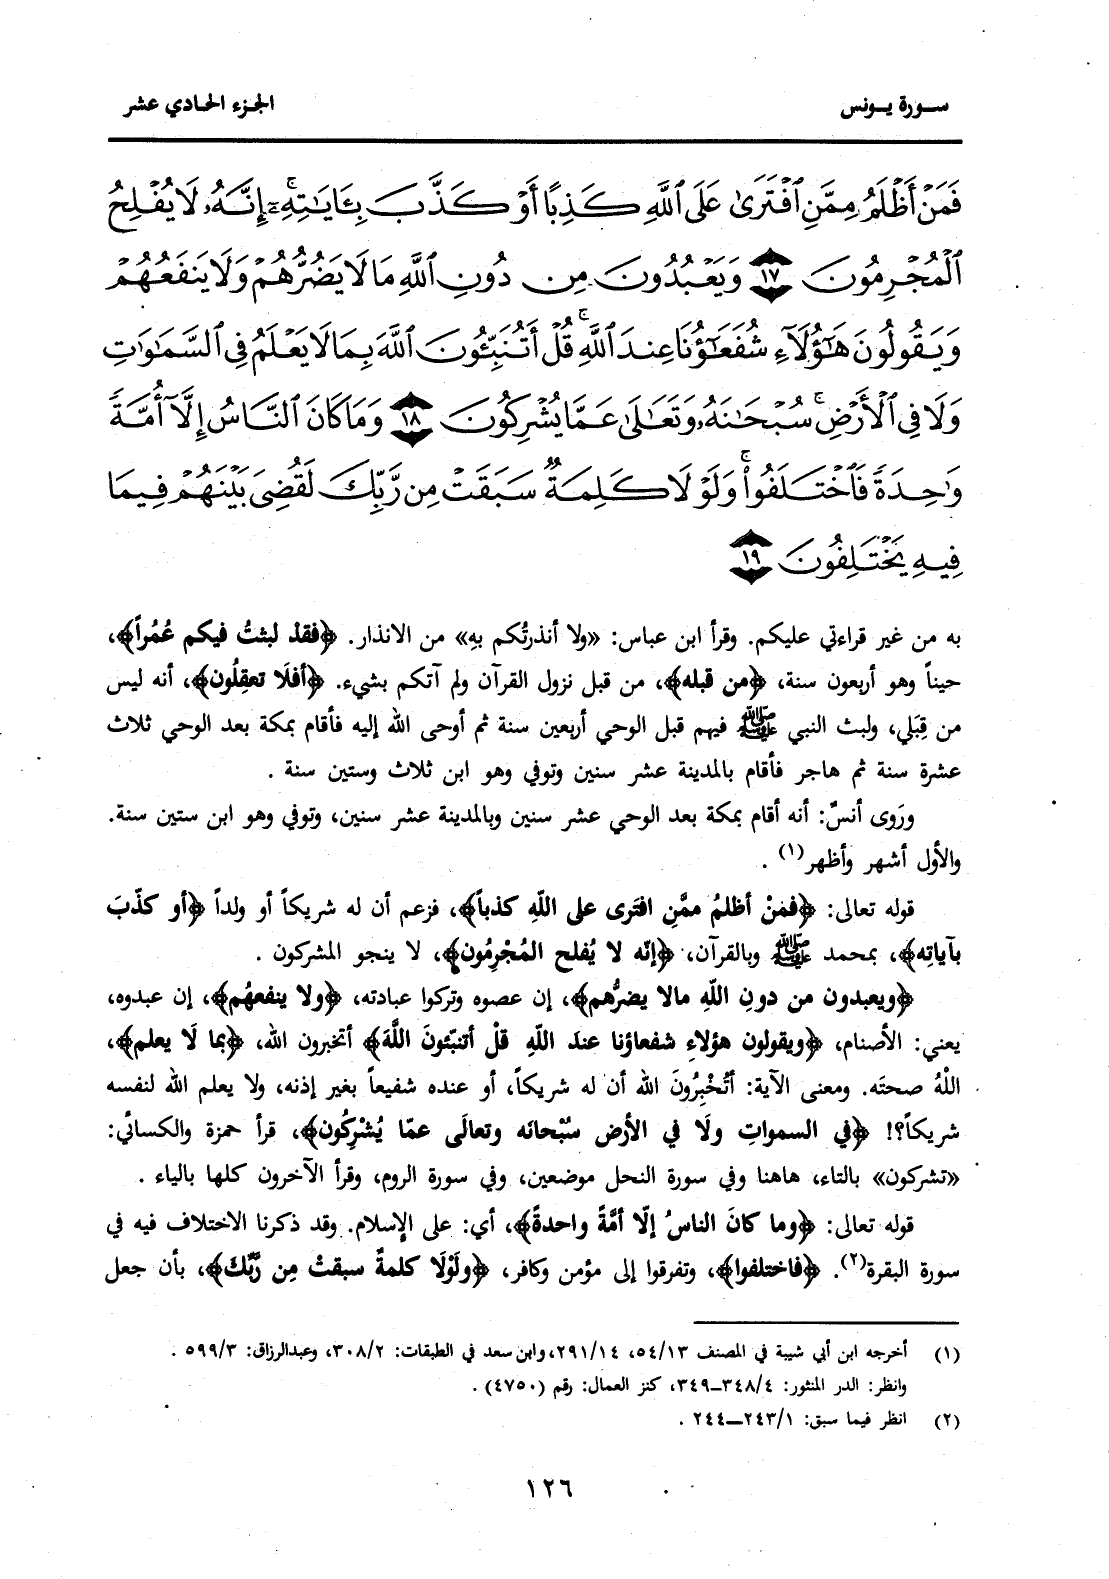 سورة يونس
الجزء الحادي عشر
فَمَنْ أَظْلَمُ مِمَّنِ ٱفْتَرَىٰ عَلَى ٱللَّهِ كَذِبًا أَوْ كَذَّبَ بِـَٔايَـٰتِهِۦٓ ۚ إِنَّهُۥ لَا يُفْلِحُ
ٱلْمُجْرِمُونَ ١٧ وَيَعْبُدُونَ مِن دُونِ ٱللَّهِ مَا لَا يَضُرُّهُمْ وَلَا يَنفَعُهُمْ
وَيَقُولُونَ هَـٰٓؤُلَآءِ شُفَعَـٰٓؤُنَا عِندَ ٱللَّهِ ۚ قُلْ أَتُنَبِّـُٔونَ ٱللَّهَ بِمَا لَا يَعْلَمُ فِى ٱلسَّمَـٰوَٰتِ
وَلَا فِى ٱلْأَرْضِ ۚ سُبْحَـٰنَهُۥ وَتَعَـٰلَىٰ عَمَّا يُشْرِكُونَ ١٨ وَمَا كَانَ ٱلنَّاسُ إِلَّآ أُمَّةً
وَٰحِدَةً فَٱخْتَلَفُوا۟ ۚ وَلَوْلَا كَلِمَةٌ سَبَقَتْ مِن رَّبِّكَ لَقُضِىَ بَيْنَهُمْ فِيمَا
فِيهِ يَخْتَلِفُونَ ١٩
به من غير قراءتي عليكم. وقرأ ابن عباس: «ولا أنذرتُكم بهِ» من الانذار. ﴿فقدْ لبثتُ فيكم عُمُراً﴾،
حيناً وهو أربعون سنة، ﴿من قبله﴾، من قبل نزول القرآن ولم آتكم بشيء. ﴿أفلَا تعقِلُون﴾، أنه ليس
من قِبَلي، ولبث النبي ﷺ فيهم قبل الوحي أربعين سنة ثم أوحى الله إليه فأقام بمكة بعد الوحي ثلاث
عشرة سنة ثم هاجر فأقام بالمدينة عشر سنين وتوفي وهو ابن ثلاث وستين سنة .
ورَوى أنسٌ: أنه أقام بمكة بعد الوحي عشر سنين وبالمدينة عشر سنين، وتوفي وهو ابن ستين سنة.
والأول أشهر وأظهر(١) .
قوله تعالى: ﴿فمَنْ أظلمُ ممَّنِ افترى على اللّهِ كذباً﴾، فزعم أن له شريكاً أو ولداً ﴿أو كذّبَ
بآياتِه﴾، بمحمد ﷺ وبالقرآن، ﴿إنّه لا يُفلح المُجْرِمُون﴾، لا ينجو المشركون .
﴿ويعبدون من دونِ اللّهِ مالا يضرُّهم﴾، إن عصوه وتركوا عبادته، ﴿ولا ينفعهُم﴾، إن عبدوه،
يعني: الأصنام، ﴿ويقولون هؤلاءِ شفعاؤنا عندَ اللّهِ قلْ أتنبّئونَ اللَّهَ﴾ أتخبرون الله، ﴿بما لَا يعلم﴾،
اللّهُ صحتَه. ومعنى الآية: أتُخْبِرُونَ الله أن له شريكاً، أو عنده شفيعاً بغير إذنه، ولا يعلم الله لنفسه
شريكاً؟! ﴿في السمواتِ ولَا في الأرض سُبْحانَه وتعالَى عمّا يُشْرِكُون﴾، قرأ حمزة والكسائي:
«تشركون» بالتاء، هاهنا وفي سورة النحل موضعين، وفي سورة الروم، وقرأ الآخرون كلها بالياء .
قوله تعالى: ﴿وما كانَ الناسُ إلّا أمَّةً واحدةً﴾، أي: على الإسلام. وقد ذكرنا الاختلاف فيه في
سورة البقرة(٢). ﴿فاختلفوا﴾، وتفرقوا إلى مؤمن وكافر، ﴿ولَوْلَا كلمةٌ سبقتْ مِن رَّبِّكَ﴾، بأن جعل
(١) أخرجه ابن أبي شيبة في المصنف ٥٤/١٣، ٢٩١/١٤، وابن سعد في الطبقات: ٣٠٨/٢، وعبدالرزاق: ٥٩٩/٣ .
وانظر: الدر المنثور: ٣٤٨/٤ــ٣٤٩، كنز العمال: رقم (٤٧٥٠) .
(٢) انظر فيما سبق: ٢٤٣/١ــ٢٤٤ .
١٢٦